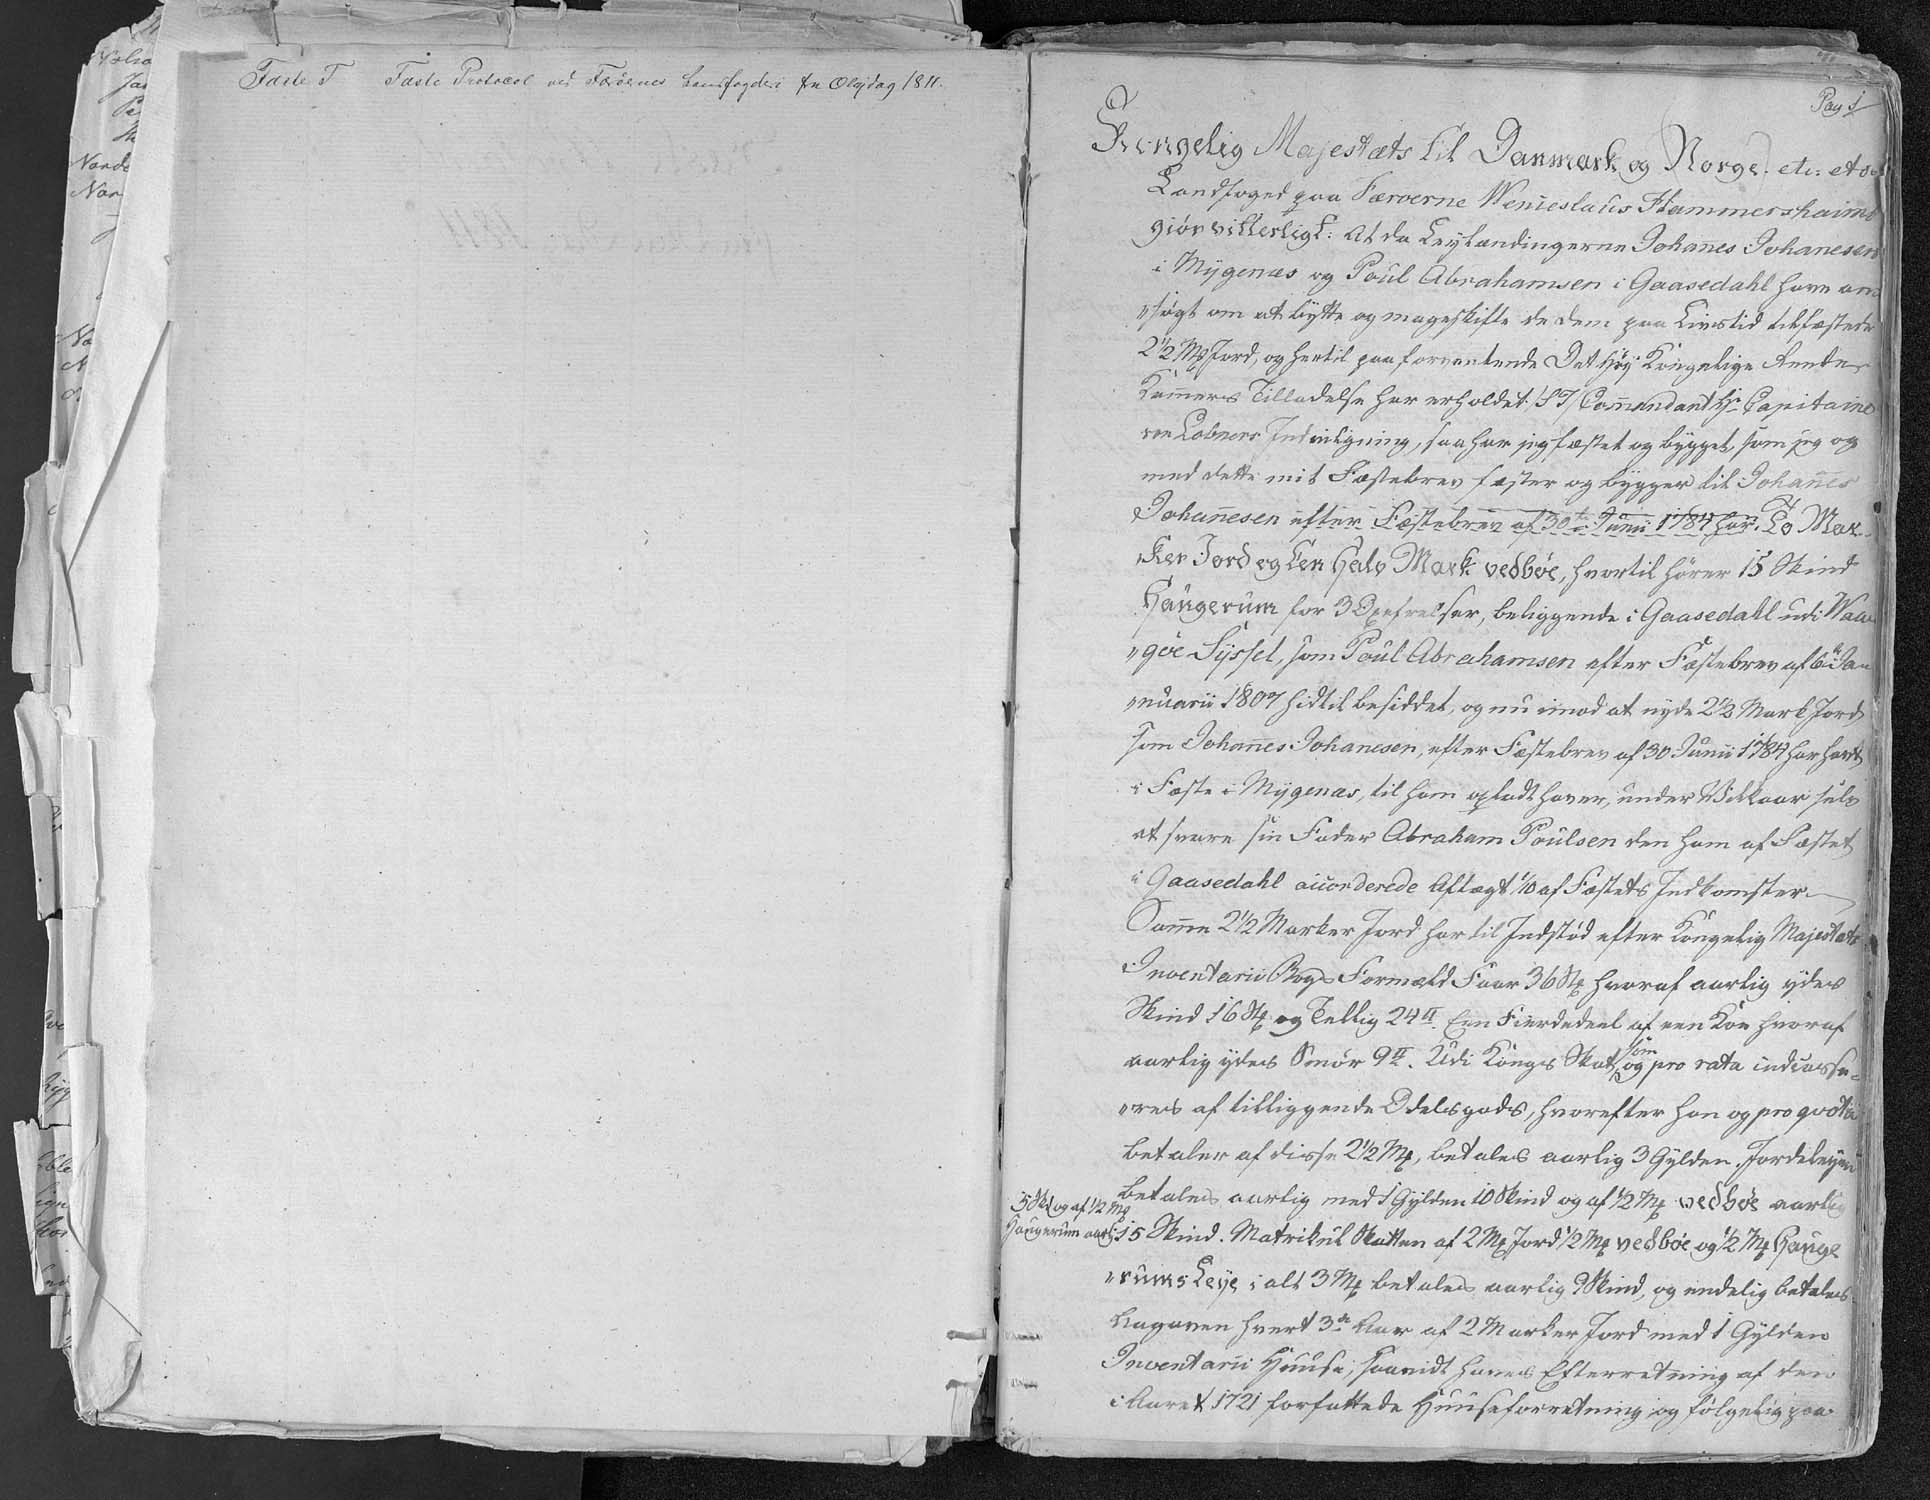 Fæste T Fæste Protocol ved Færøernes Landfogderi fra Olajdag 1811.
Pag 1
Kongelig Majestæts til Danmark og Norge. etc: etc
Landfoged paa Færøerne Wenseslaus Hammershaimb
giør vitterligt: At da Leylændingerne Johanes Johanesen
i Mygenæs og Poul Abrahamsen i Gaasedahl have an-
„søgt om at bytte og mageskifte de dem paa Livstid tilfæstede
2½ Mk Jord, og hertil paa forventende Det Høy Kongelige Rente
Kammers Tilladelse har erholdet S T Commendant Hr Capitaine
von Løbners Indvilgning, saa har jeg fæstet og bygget, som jeg og
med dette mit Fæstebrev fæster og bygger til Johannes
Johannesen efter Fæstebrev af 30te Junii 1784 har To Mar-
ker Jord og Een Halv Mark vedbøe, hvortil hører 15 Skind
Haugerum for 3 Oxefrelser, beliggende i Gaasedahl udi Waa-
„gøe Syssel, som Poul Abrahamsen efter Fæstebrev af 6te Ja-
„nuarii 1807 hidtil besiddet, og nu imod at nyde 2½ Mark Jord
som Johannes Johanesen, efter Fæstebrev af 30 Junii 1784 har havt
i Fæste i Mygenæs, til ham opladt haver, under Vilkaar selv
at svare sin Fader Abraham Poulsen den ham af Fæstet
i Gaasedahl accorderede Aftægt 1/10 af Fæstets Indkomster.
Samme 2½ Marker Jord har til Indstød efter Kongelig Majestæts
Inventarii Bogs Formæld Faar 36 Stk hvoraf aarlig ydes
Skind 16 Stk og Tellig 24 ℔. Een Fierdedeel af een Koe hvoraf
aarlig ydes Smør 9 ℔. Udi Kongs Skat, som og pro rata indcasse-
„res af tilliggende Odelsgods, hvorefter han og pro qvota
betaler af disse 2½ Mk, betales aarlig 3 Gylden. Jordeleyen
betales aarlig med 1 Gylden 10 Skind og af ½ Mk vedbøe aarlig
5 Skd og af ½ Mk
Haugerum aarl: 15 Skind. Matrikul Skatten af 2 Mk Jord ½ Mk vedbøe og ½ Mk Hauge
„rums Leye, i alt 3 Mk betales aarlig 9 Skind, og endelig betales
Aagaven hvert 3de Aar af 2 Marker Jord med 1 Gylden
Inventarii Huuse, saavidt haves Efterretning af den
i Aaret 1721 forfattede Huuseforretning og følgelig paa